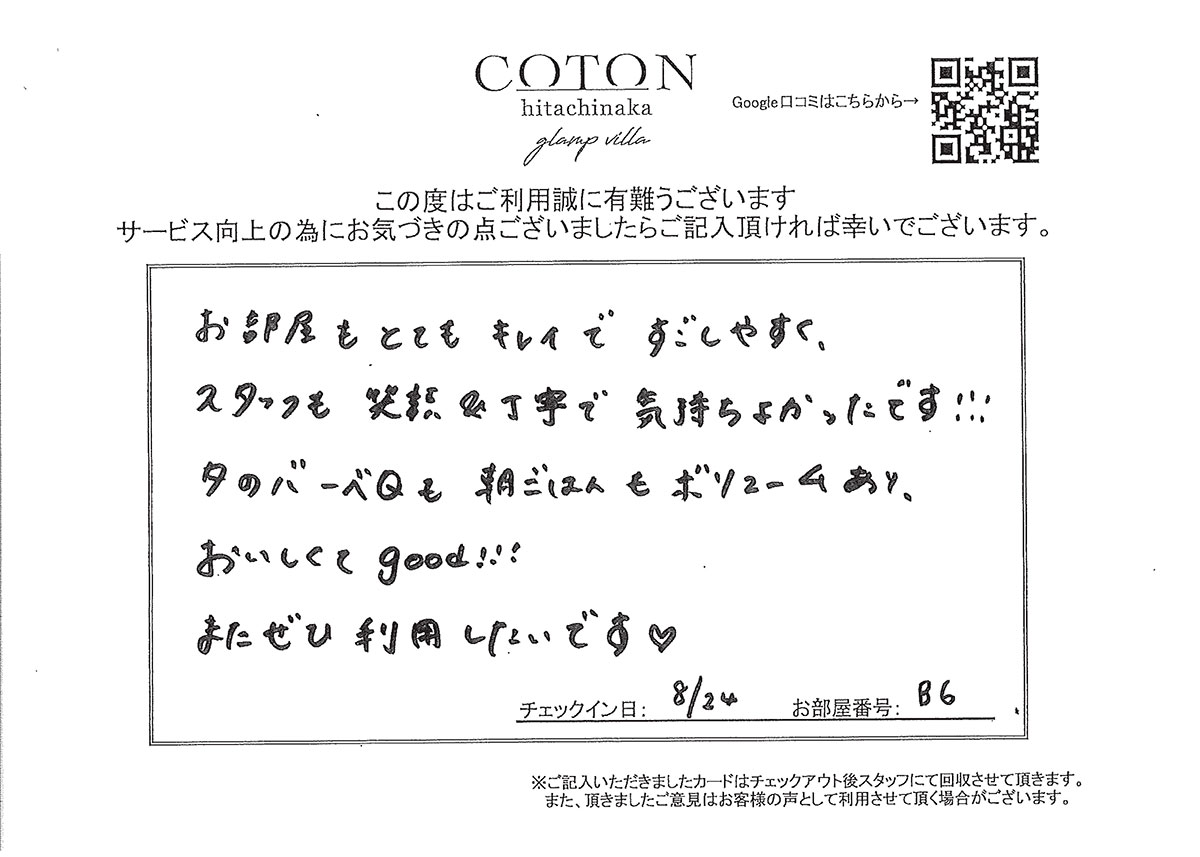 COTON
hitachinaka
glamp villa
Google口コミはこちらから→
この度はご利用誠に有難うございます
サービス向上の為にお気づきの点ございましたらご記入頂ければ幸いでございます。
お部屋もとてもキレイですごしやすく、
スタッフも笑顔&丁寧で気持ちよかったです!!!
夕のバーベQも朝ごはんもボリュームあり、
おいしくてgood!!!
またぜひ利用したいです♡
チェックイン日: 8/24 お部屋番号: B6
※ご記入いただきましたカードはチェックアウト後スタッフにて回収させて頂きます。
また、頂きましたご意見はお客様の声として利用させて頂く場合がございます。